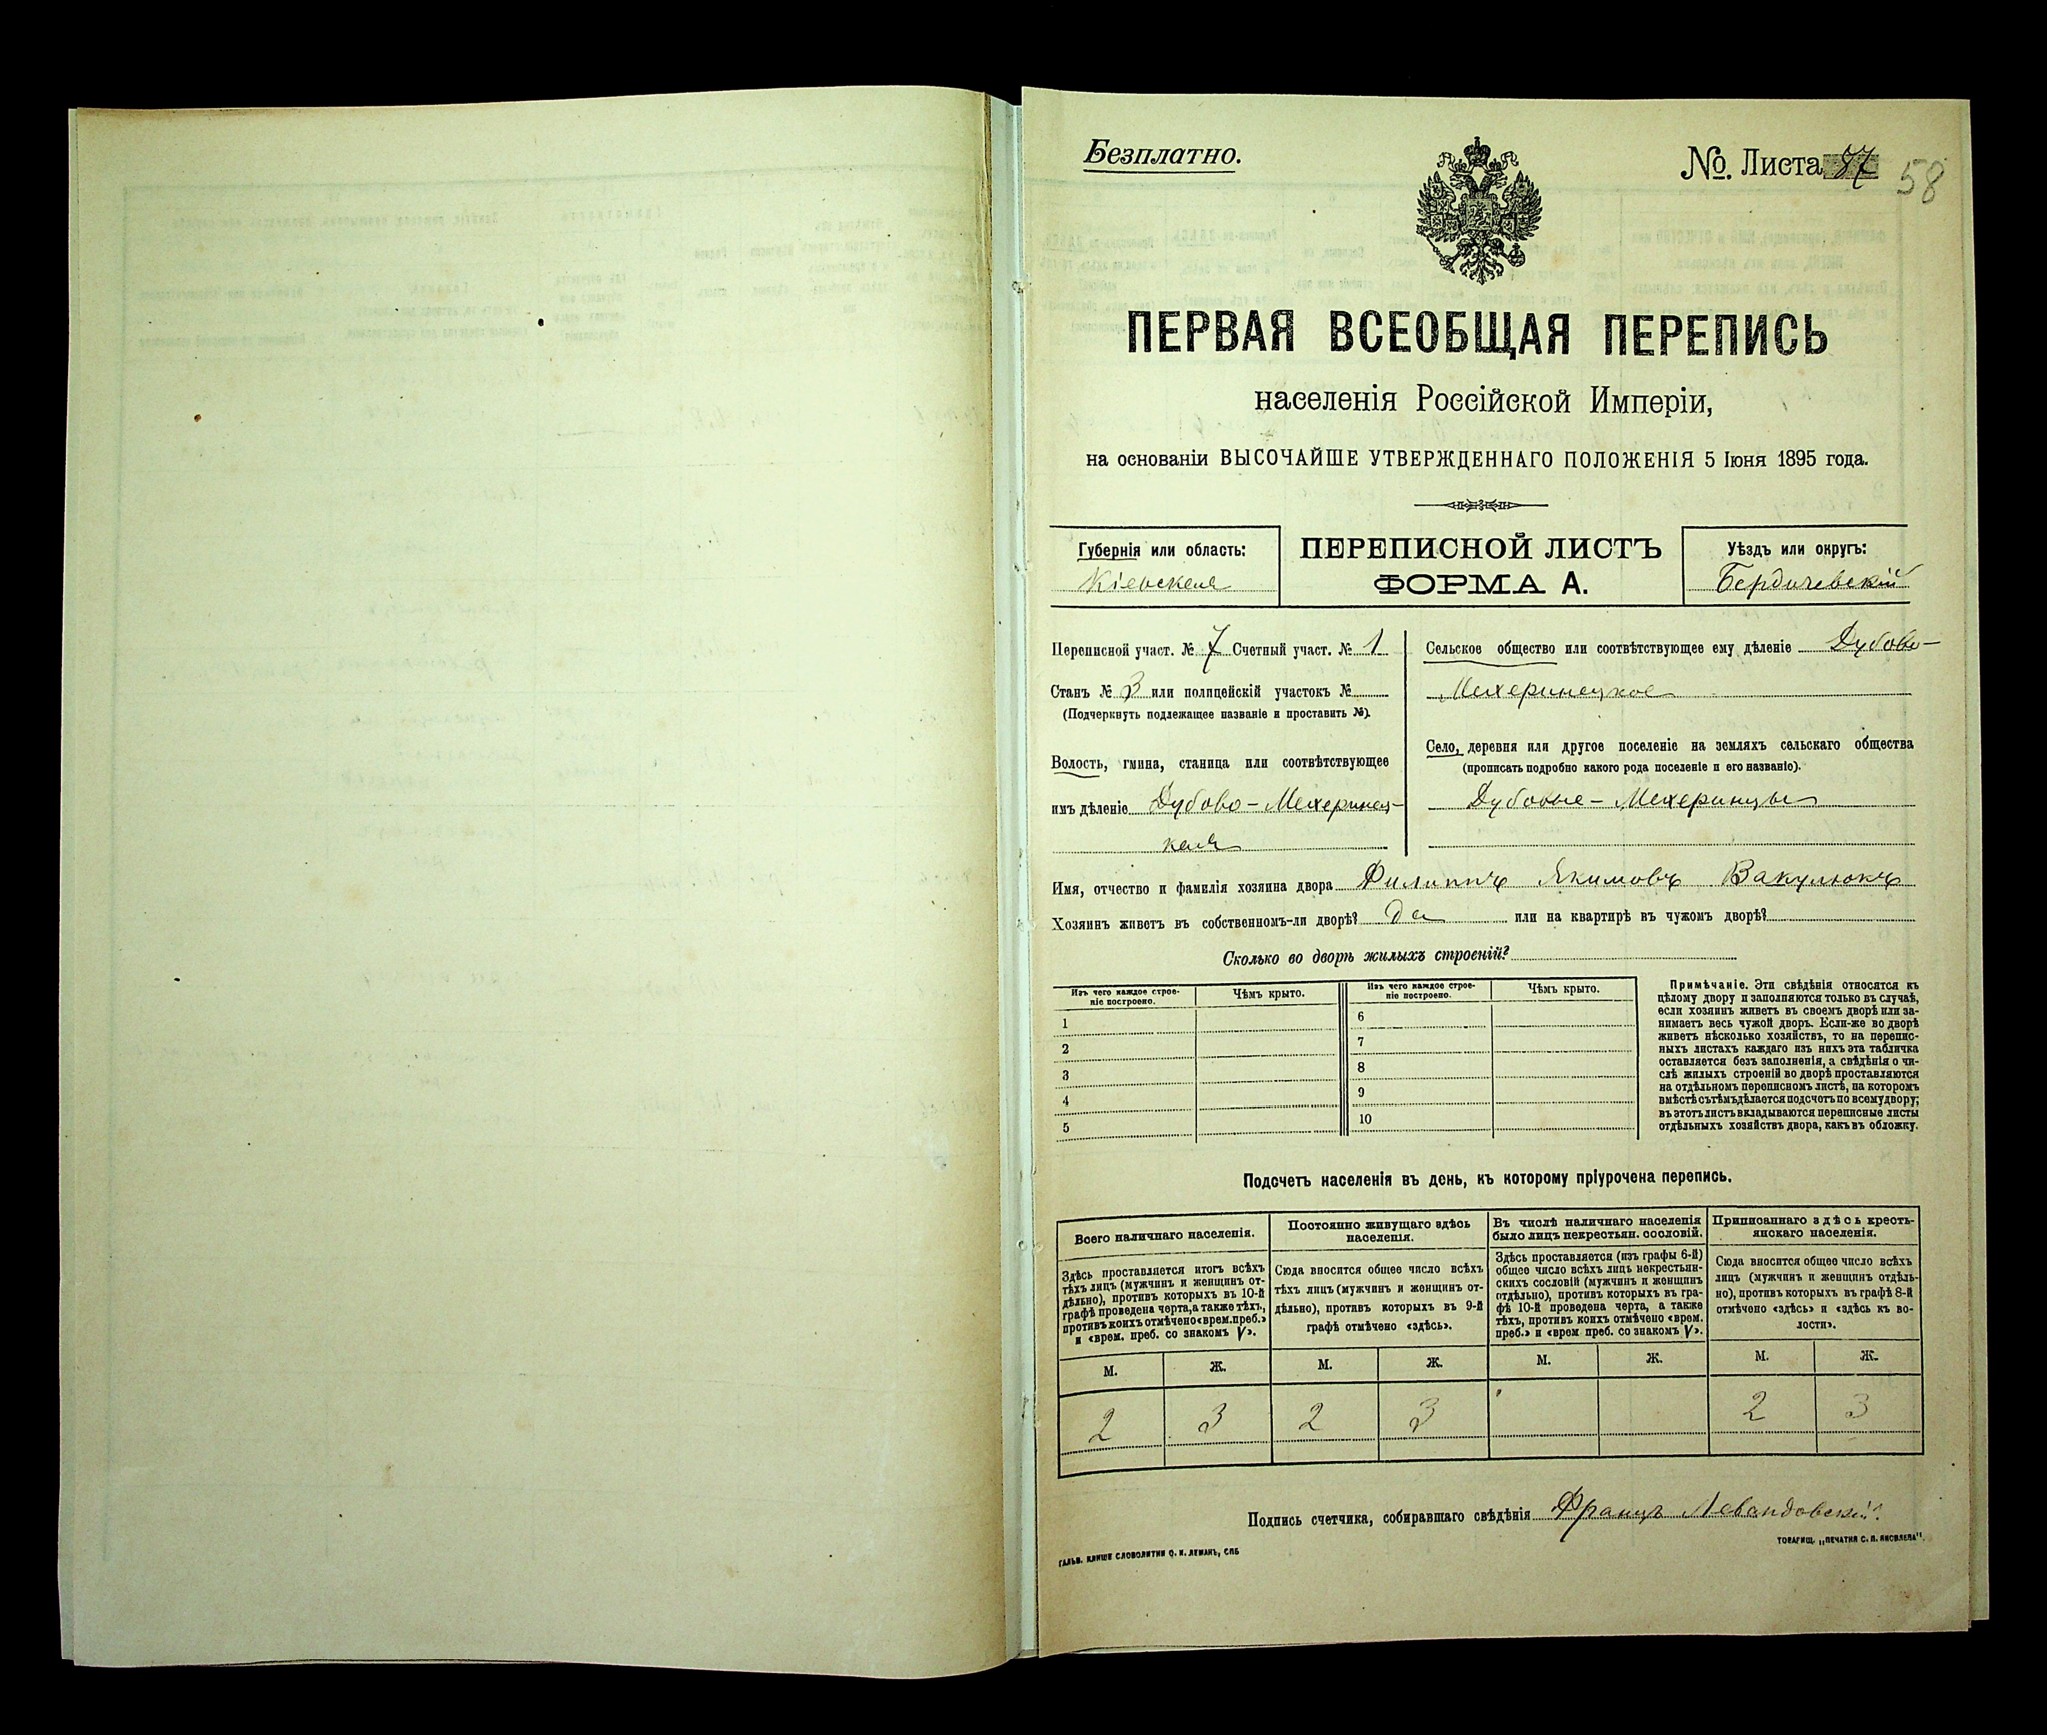 Безплатно.
№. Листа 37
58
ПЕРВАЯ ВСЕОБЩАЯ ПЕРЕПИСЬ
населенія Россійской Имперіи,
на основаніи ВЫСОЧАЙШЕ УТВЕРЖДЕННАГО ПОЛОЖЕНІЯ 5 Іюня 1895 года.
Губернія или область:
Кіевская
ПЕРЕПИСНОЙ ЛИСТЪ
ФОРМА А.
Уѣздъ или округъ:
Бердичевскій
Переписной участ. № 7 Счетный участ. № 1
Станъ № 3 или полицейскій участокъ №
(Подчеркнуть подлежащее названіе и проставить №).
Волость, гмина, станица или соотвѣтствующее
имъ дѣленіе Дубово-Мехеринец-
кая
Сельское общество или соотвѣтствующее ему дѣленіе Дубово-
Мехеринецкое
Село, деревня или другое поселеніе на земляхъ сельскаго общества
(прописать подробно какого рода поселеніе и его названіе).
Дубовые-Мехеринцы
Имя, отчество и фамилія хозяина двора Филиппъ Якимовъ Вакулюкъ
Хозяинъ живетъ въ собственномъ-ли дворѣ? да или на квартирѣ въ чужомъ дворѣ?
Сколько во дворѣ жилыхъ строеній?
Изъ чего каждое строе-
ніе построено.
Чѣмъ крыто.
1
2
3
4
5
Изъ чего каждое строе-
ніе построено.
Чѣмъ крыто.
6
7
8
9
10
Примѣчаніе. Эти свѣдѣнія относятся къ
цѣлому двору и заполняются только въ случаѣ,
если хозяинъ живетъ въ своемъ дворѣ или за-
нимаетъ весь чужой дворъ. Если-же во дворѣ
живетъ нѣсколько хозяйствъ, то на перепис-
ныхъ листахъ каждаго изъ нихъ эта табличка
оставляется безъ заполненія, а свѣдѣнія о чи-
слѣ жилыхъ строеній во дворѣ проставляются
на отдѣльномъ переписномъ листѣ, на которомъ
вмѣстѣ съ тѣмъ дѣлается подсчетъ по всему двору;
въ этотъ листъ вкладываются переписные листы
отдѣльныхъ хозяйствъ двора, какъ въ обложку.
Подсчетъ населенія въ день, къ которому пріурочена перепись.
Всего наличнаго населенія.
Здѣсь проставляется итогъ всѣхъ
тѣхъ лицъ (мужчинъ и женщинъ от-
дѣльно), противъ которыхъ въ 10-й
графѣ проведена черта, а также тѣхъ,
противъ коихъ отмѣчено «врем. преб.»
и «врем. преб. со знакомъ V».
М. Ж.
2 3
Постоянно живущаго здѣсь
населенія.
Сюда вносится общее число всѣхъ
тѣхъ лицъ (мужчинъ и женщинъ от-
дѣльно), противъ которыхъ въ 9-й
графѣ отмѣчено «здѣсь».
М. Ж.
2 3
Въ числѣ наличнаго населенія
было лицъ некрестьян. сословій.
Здѣсь проставляется (изъ графы 6-й)
общее число всѣхъ лицъ некрестьян-
скихъ сословій (мужчинъ и женщинъ
отдѣльно), противъ которыхъ въ гра-
фѣ 10-й проведена черта, а также
тѣхъ, противъ коихъ отмѣчено «врем.
преб.» и «врем преб. со знакомъ V».
М. Ж.
Приписаннаго здѣсь кресть-
янскаго населенія.
Сюда вносится общее число всѣхъ
лицъ (мужчинъ и женщинъ отдѣль-
но), противъ которыхъ въ графѣ 8-й
отмѣчено «здѣсь» и «здѣсь къ во-
лости».
М. Ж.
2 3
Подпись счетчика, собиравшаго свѣдѣнія Францъ Левандовскій.
ГАЛЬВ. КЛИШЕ СЛОВОЛИТНИ О. И. ЛЕМАНЪ, СПБ
ТОВАРИЩ. „ПЕЧАТНЯ С. П. ЯКОВЛЕВА".